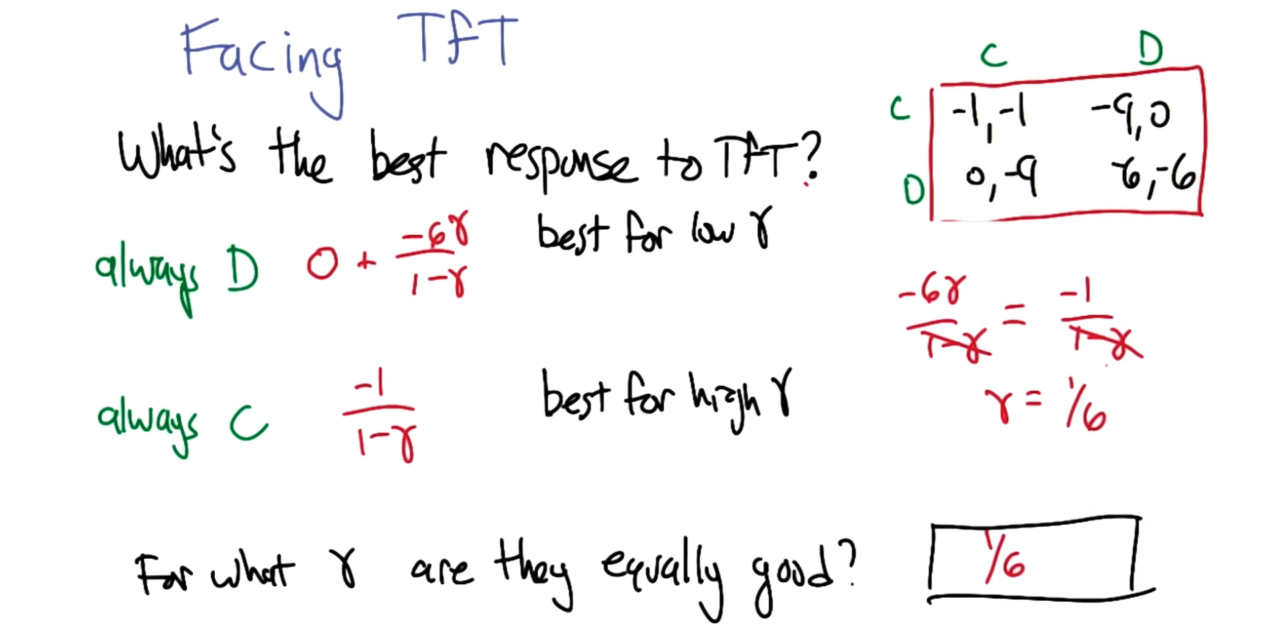 Facing TfT
C D
C -1,-1 -9,0
D 0,-9 -6,-6
What's the best response to TfT?
always D 0 + -6γ/1-γ best for low γ
-6γ/1-γ = -1/1-γ
γ = 1/6
always C -1/1-γ best for high γ
For what γ are they equally good? 1/6